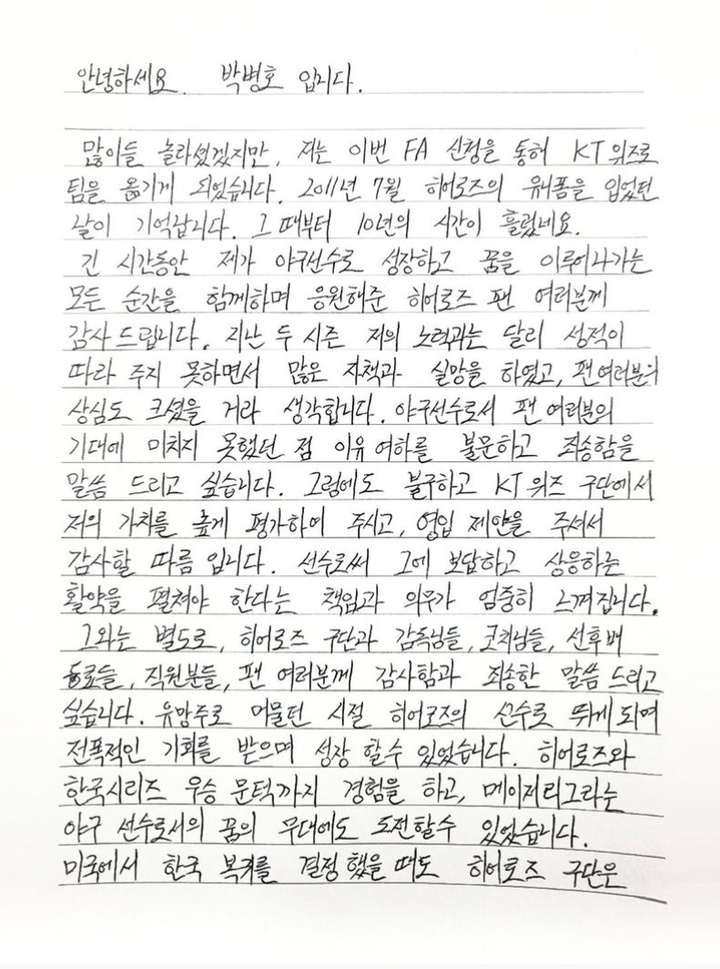 안녕하세요. 박병호 입니다.
많이들 놀라셨겠지만, 저는 이번 FA 신청을 통해 KT위즈로
팀을 옮기게 되었습니다. 2011년 7월 히어로즈의 유니폼을 입었던
날이 기억납니다. 그 때부터 10년의 시간이 흘렀네요.
긴 시간동안 제가 야구선수로 성장하고 꿈을 이루어나가는
모든 순간을 함께하며 응원해준 히어로즈 팬 여러분께
감사 드립니다. 지난 두 시즌 저의 노력과는 달리 성적이
따라 주지 못하면서 많은 자책과 실망을 하였고, 팬 여러분의
상심도 크셨을 거라 생각합니다. 야구선수로서 팬 여러분의
기대에 미치지 못했던 점 이유 여하를 불문하고 죄송함을
말씀 드리고 싶습니다. 그럼에도 불구하고 KT위즈 구단에서
저의 가치를 높게 평가하여 주시고, 영입 제안을 주셔서
감사할 따름 입니다. 선수로써 그에 보답하고 상응하는
활약을 펼쳐야 한다는 책임과 의무가 엄중히 느껴집니다.
그와는 별도로, 히어로즈 구단과 감독님들, 코치님들, 선후배
동료들, 직원분들, 팬 여러분께 감사함과 죄송한 말씀 드리고
싶습니다. 유망주로 머물던 시절 히어로즈의 선수로 뛰게 되며
전폭적인 기회를 받으며 성장 할수 있었습니다. 히어로즈와
한국시리즈 우승 문턱까지 경험을 하고, 메이저리그라는
야구 선수로서의 꿈의 무대에도 도전할수 있었습니다.
미국에서 한국 복귀를 결정 했을 때도 히어로즈 구단은